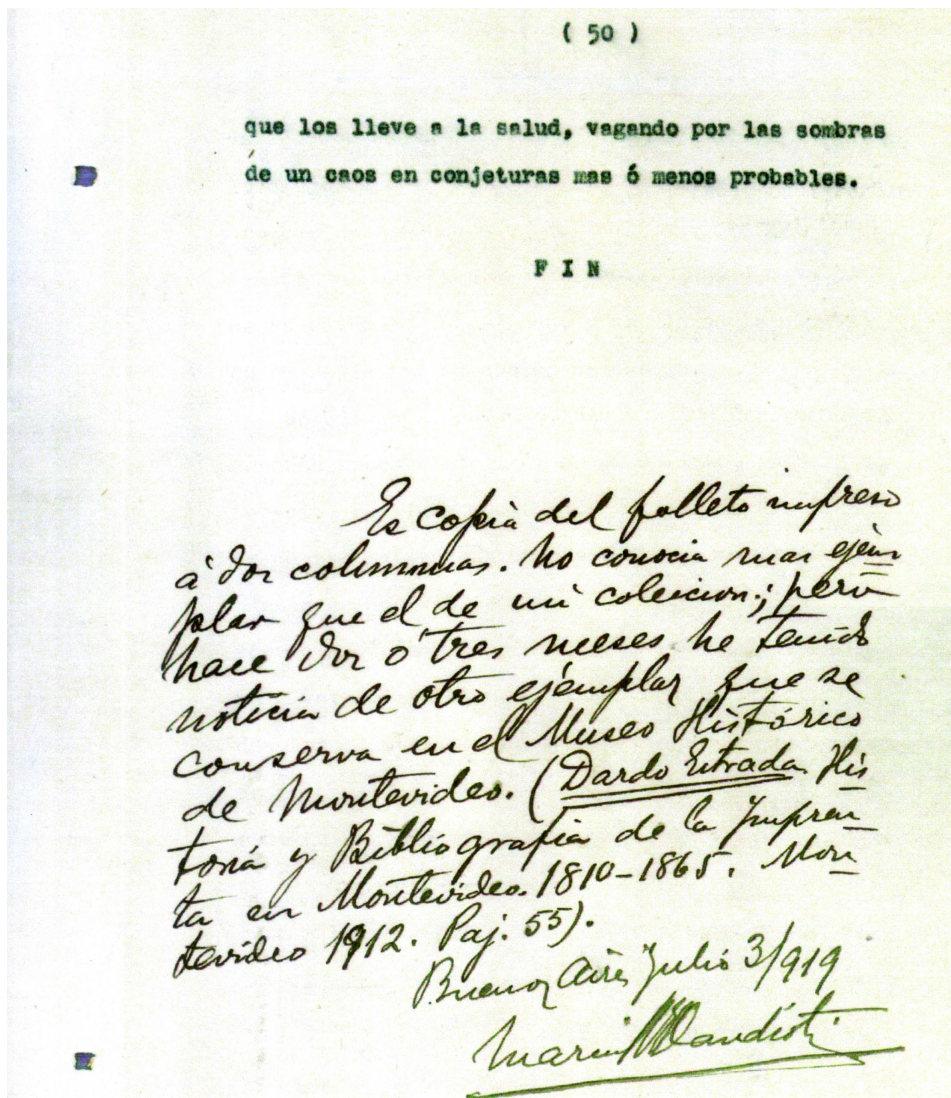 ( 50 )
que los lleve a la salud, vagando por las sombras
de un caos en conjeturas mas ó menos probables.
F I N
Es copia del folleto impreso
á dos columnas. No conocia mas ejem
plar que el de mi coleccion; pero
hace dos ó tres meses he tenido
noticia de otro ejemplar que se
conserva en el Museo Histórico
de Montevideo. (Dardo Estrada His
toria y Bibliografia de la Impren
ta en Montevideo. 1810-1865. Mon
tevideo 1912. Paj. 55).
Buenos Aires Julio 3/919